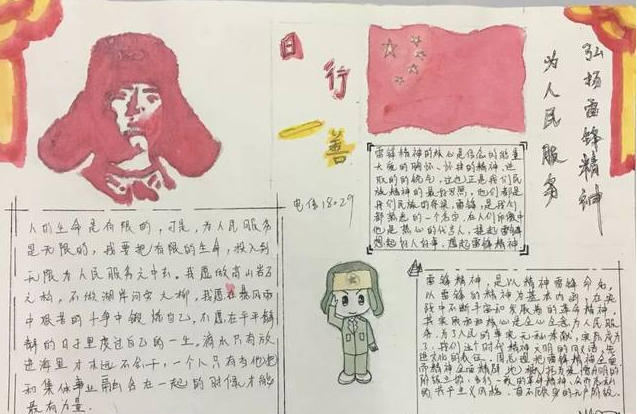 日行一善
弘扬雷锋精神
为人民服务
电信18-29
雷锋精神的核心是信念的能量
大爱的胸怀、忘我的精神、进
取的锐气,这也正是我们民
族精神的最好写照,他们都是
我们民族的脊梁,雷锋,是我们
都熟悉的一个名字,在人们印象中
他是热心的代言人,提起雷锋
想起好人好事,想起雷锋精神
人的生命是有限的,可是,为人民服务
是无限的,我要把有限的生命,投入到
无限为人民服务之中去。我愿做高山岩石
之松,不做湖岸河旁之柳,我愿在暴风雨
中艰苦的斗争中锻炼自己,不愿在平平静
静的日子里度过自己的一生。滴水只有放
进海里才永远不会干,一个人只有当他把
和集体事业融合在一起的时候才能
最有力量。
雷锋精神,是以精神雷锋命名,
以雷锋的精神为基本内涵,在实
践中不断丰富和发展着的革命精神,
其实质和核心是全心全意为人民服
务,为了人民的事业无私奉献,